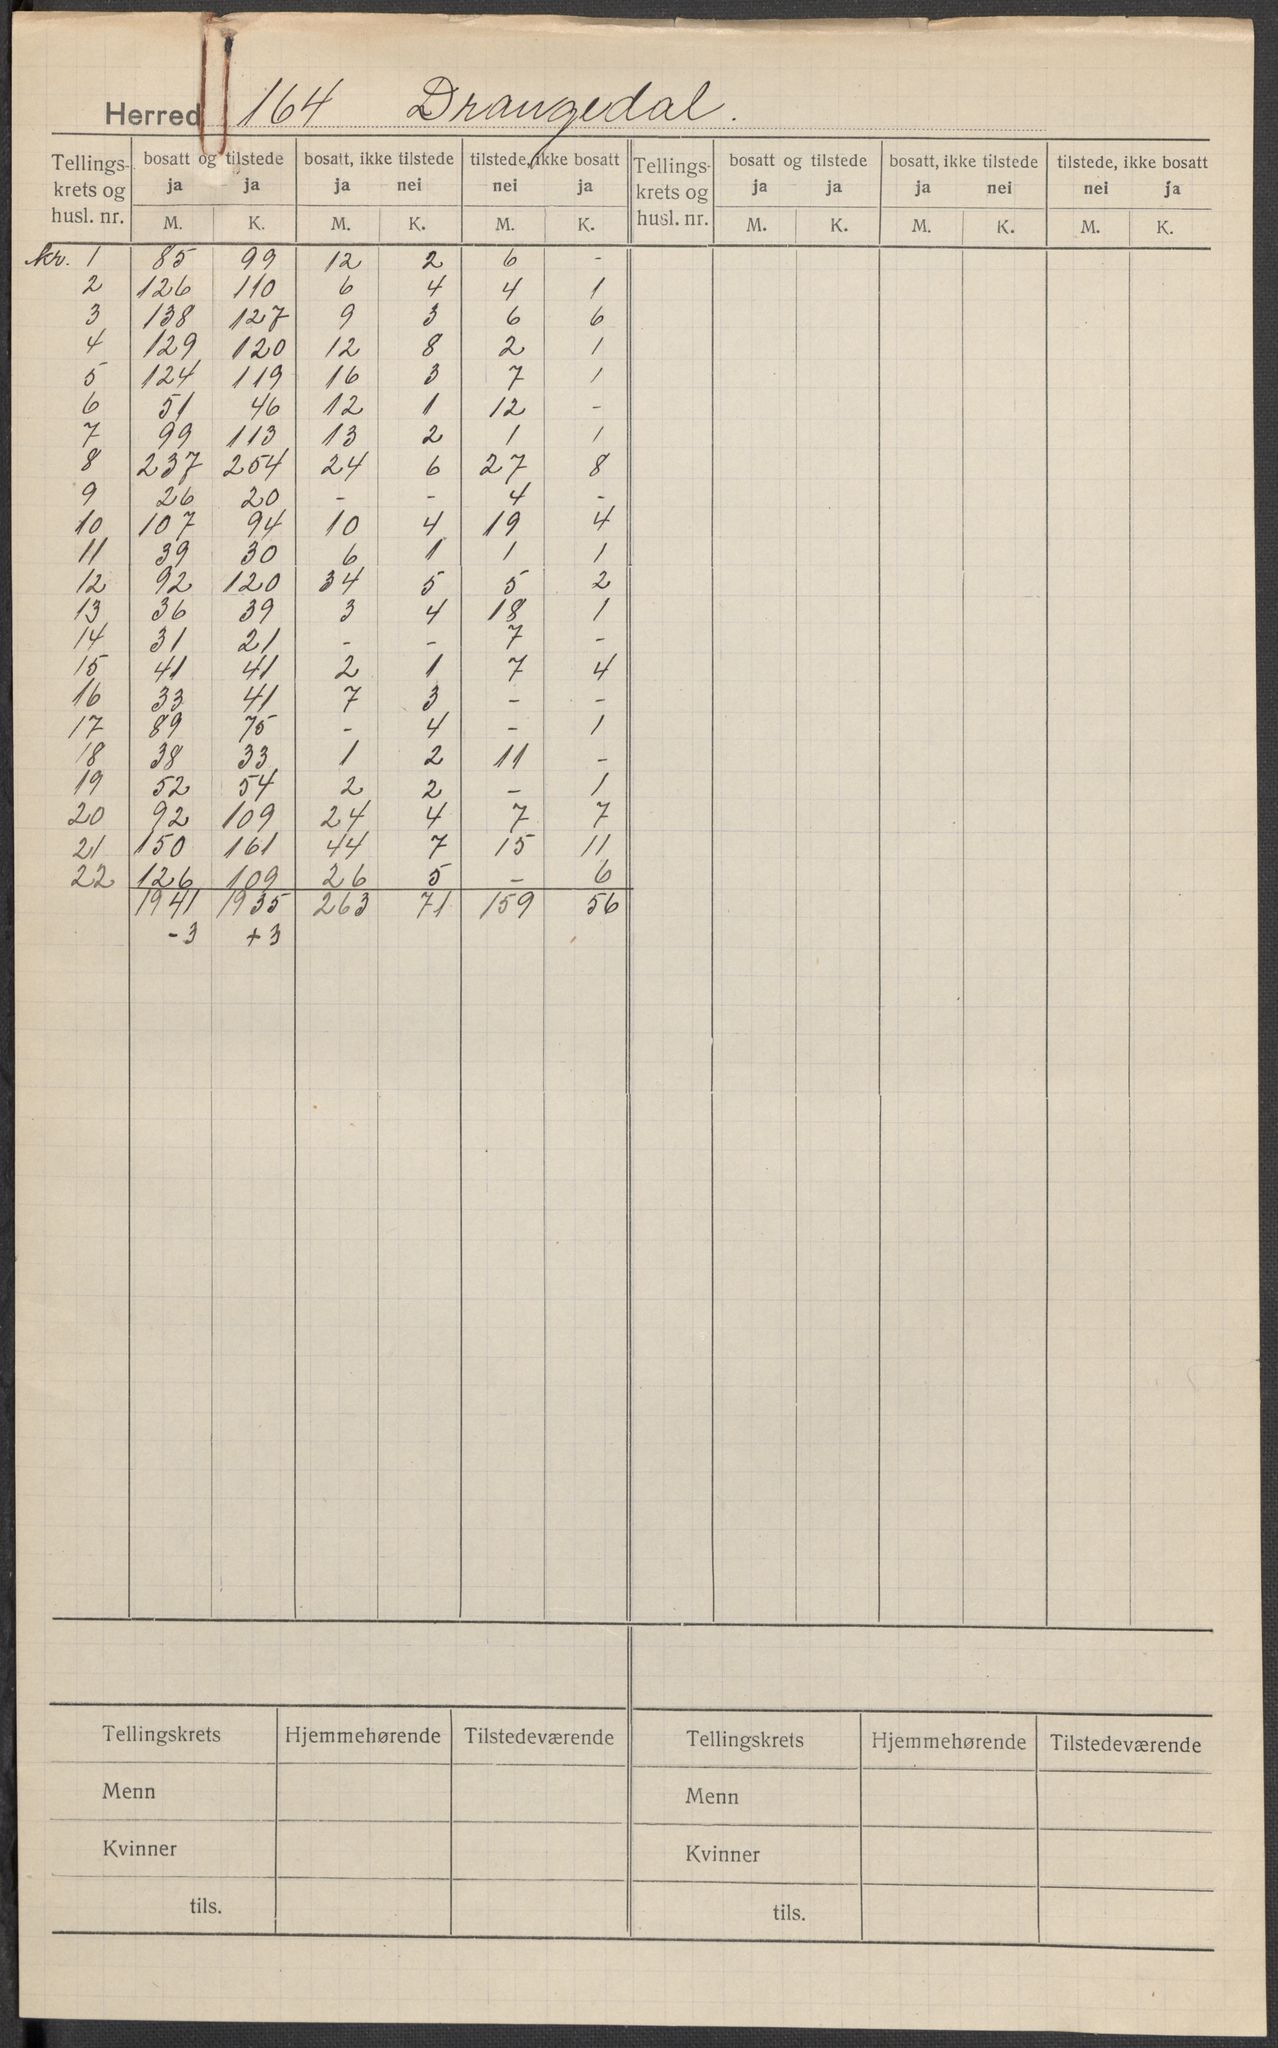 Herred 164 Drangedal.
Tellings- krets og husl. nr. | bosatt og tilstede | bosatt, ikke tilstede | tilstede, ikke bosatt | Tellings- krets og husl. nr. | bosatt og tilstede | bosatt, ikke tilstede | tilstede, ikke bosatt
ja ja ja nei nei ja ja ja ja nei nei ja
M. K. M. K. M. K. M. K. M. K. M. K.
kr. 1 85 99 12 2 6 -
2 126 110 6 4 4 1
3 138 127 9 3 6 6
4 129 120 12 8 2 1
5 124 119 16 3 7 1
6 51 46 12 1 12 -
7 99 113 13 2 1 1
8 237 254 24 6 27 8
9 26 20 - - 4 -
10 107 94 10 4 19 4
11 39 30 6 1 1 1
12 92 120 34 5 5 2
13 36 39 3 4 18 1
14 31 21 - - 7 -
15 41 41 2 1 7 4
16 33 41 7 3 - -
17 89 75 - 4 - 1
18 38 33 1 2 11 -
19 52 54 2 2 - 1
20 92 109 24 4 7 7
21 150 161 44 7 15 11
22 126 109 26 5 - 6
1941 1935 263 71 159 56
-3 +3
Tellingskrets Hjemmehørende Tilstedeværende Tellingskrets Hjemmehørende Tilstedeværende
Menn Menn
Kvinner Kvinner
tils. tils.